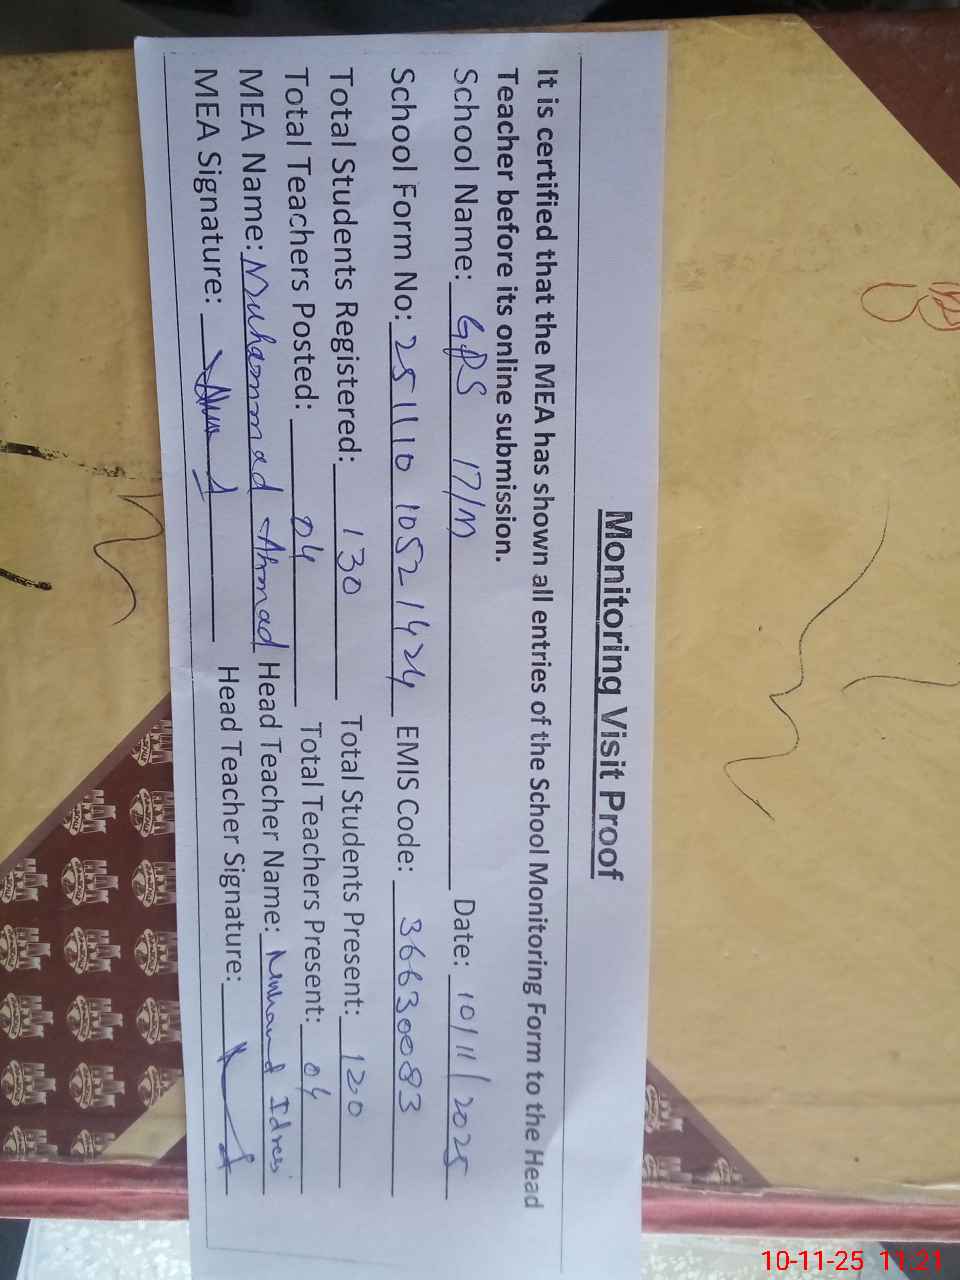 Monitoring Visit Proof
It is certified that the MEA has shown all entries of the School Monitoring Form to the Head
Teacher before its online submission.
School Name: GPS 17/M Date: 10/11/2025
School Form No: 251110 10521424 EMIS Code: 36630083
Total Students Registered: 130 Total Students Present: 120
Total Teachers Posted: 04 Total Teachers Present: 04
MEA Name: Muhammad Ahmad Head Teacher Name: Muhammad Idrees
MEA Signature: Head Teacher Signature:
10-11-25 11:21